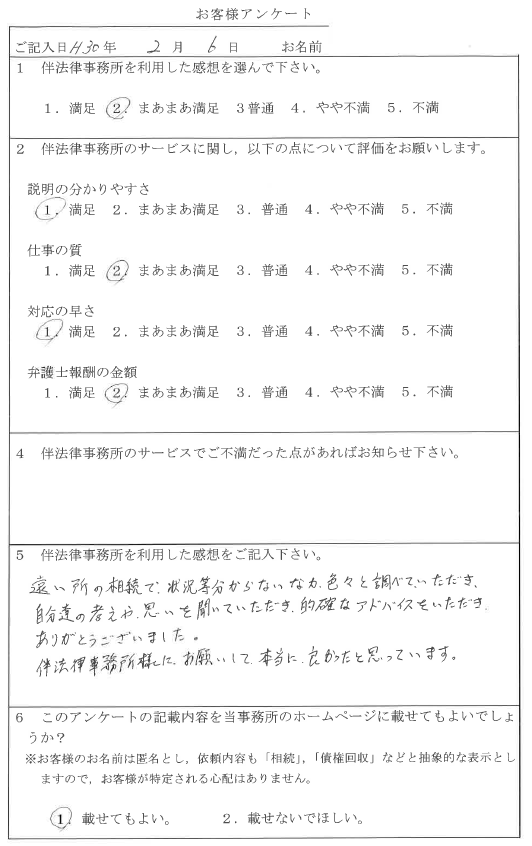 お客様アンケート
ご記入日H30年 2月 6日 お名前
1 伴法律事務所を利用した感想を選んで下さい。
1．満足 2．まあまあ満足 3普通 4．やや不満 5．不満
2 伴法律事務所のサービスに関し，以下の点について評価をお願いします。
説明の分かりやすさ
1．満足 2．まあまあ満足 3．普通 4．やや不満 5．不満
仕事の質
1．満足 2．まあまあ満足 3．普通 4．やや不満 5．不満
対応の早さ
1．満足 2．まあまあ満足 3．普通 4．やや不満 5．不満
弁護士報酬の金額
1．満足 2．まあまあ満足 3．普通 4．やや不満 5．不満
4 伴法律事務所のサービスでご不満だった点があればお知らせ下さい。
5 伴法律事務所を利用した感想をご記入下さい。
遠い所の相続で、状況等分からないなか、色々と調べていただき、
自分達の考えや、思いを聞いていただき、的確なアドバイスをいただき、
ありがとうございました。
伴法律事務所様に、お願いして、本当に、良かったと思っています。
6 このアンケートの記載内容を当事務所のホームページに載せてもよいでしょ
うか？
※お客様のお名前は匿名とし，依頼内容も「相続」，「債権回収」などと抽象的な表示とし
ますので，お客様が特定される心配はありません。
1．載せてもよい。 2．載せないでほしい。